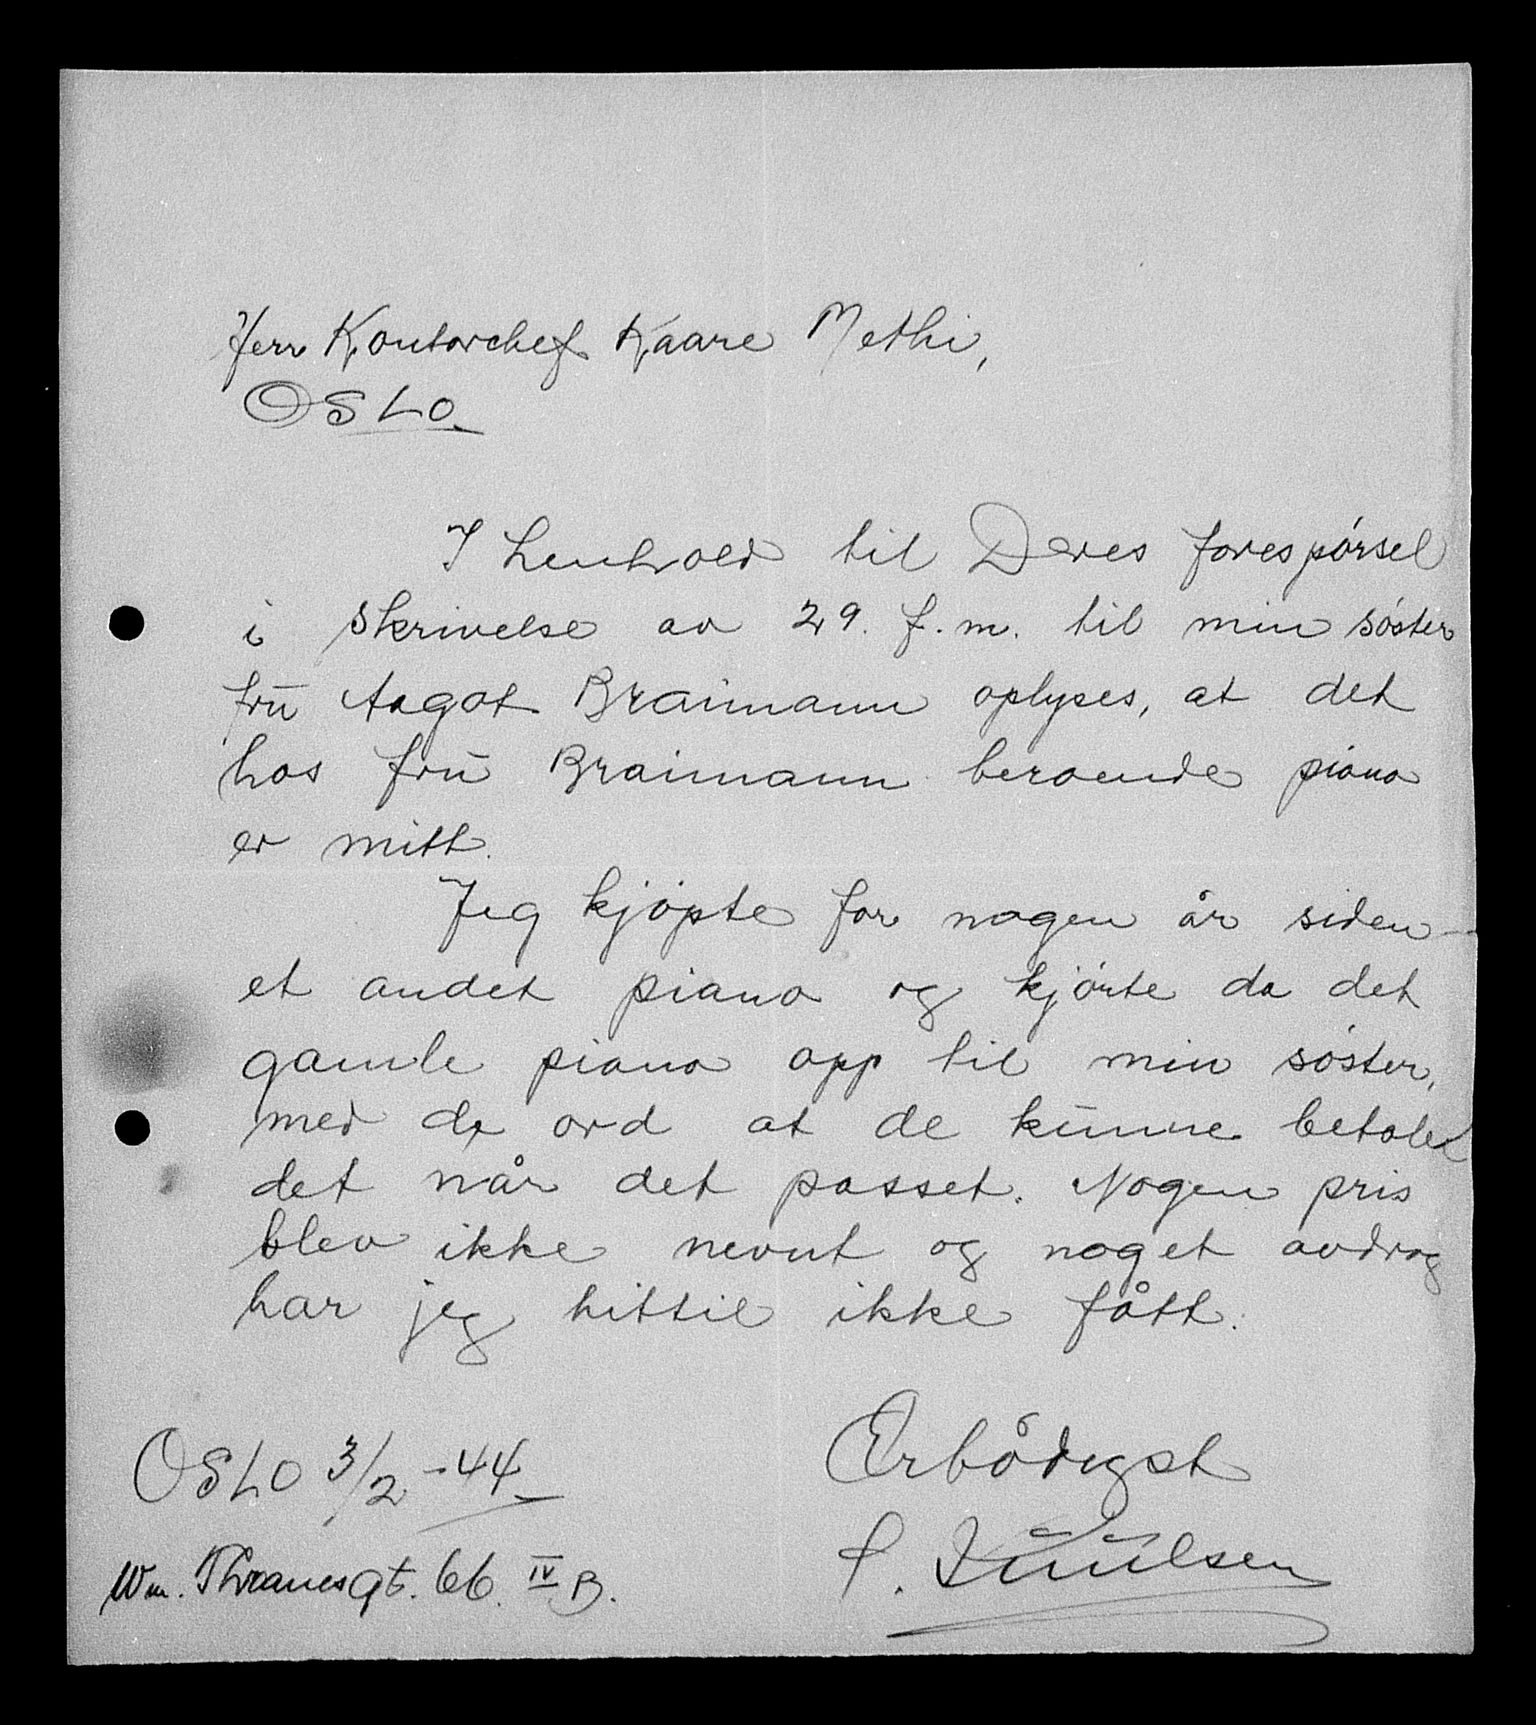 Herr Kontorchef Kaare Methi,
OSLO.
I henhold til Deres forespørsel
i skrivelse av 29. f.m. til min søster
fru Aagot Braimann oplyses, at det
hos fru Braimann beroende piano
er mitt.
Jeg kjøpte for nogen år siden
et andet piano og kjørte da det
gamle piano opp til min søster,
med de ord at de kunne betale
det når det passet. Nogen pris
blev ikke nevnt og noget avdrag
har jeg hittil ikke fått.
Ærbødigst
OSLO 3/2-44
Wm. Thranesgt. 66 IV B.